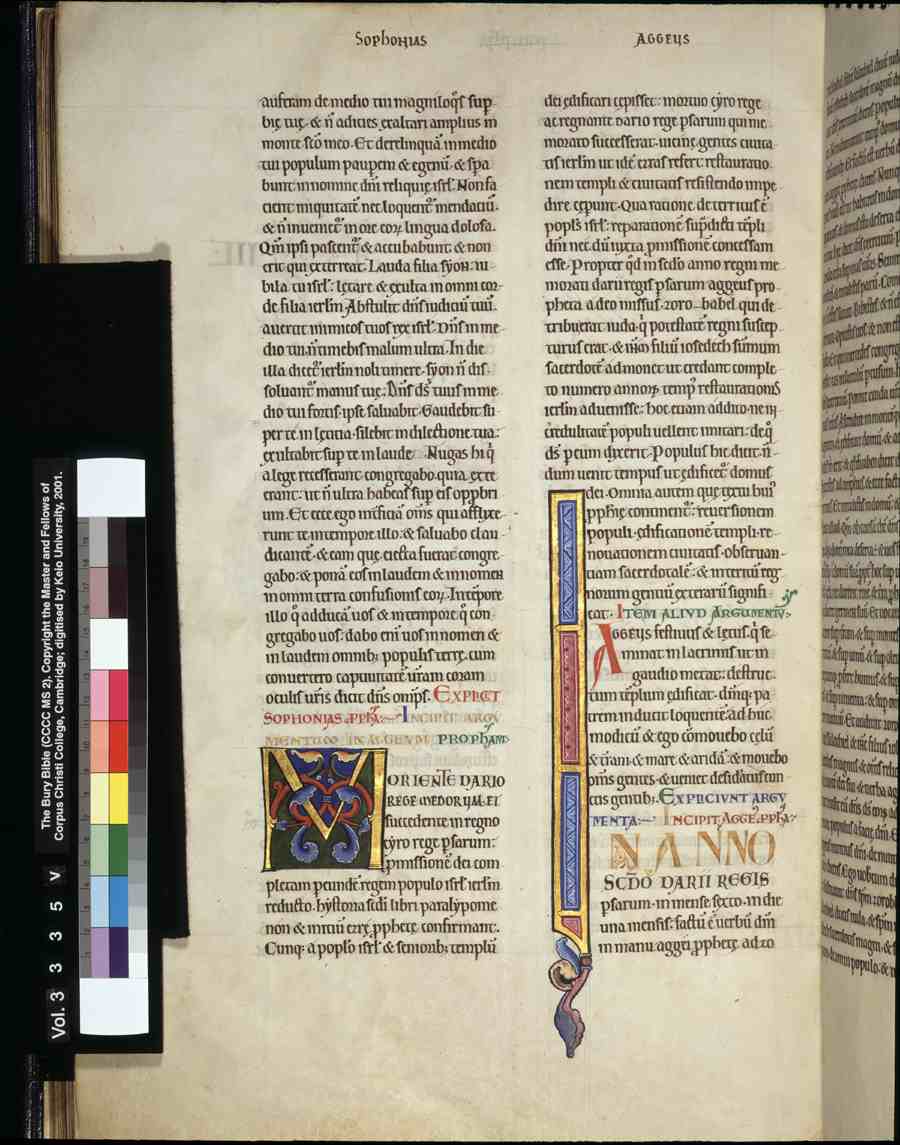 SOPHONIAS
AGGEUS
auferam de medio tui magniloq̄s sup
bię tuę. & n̄ adicies exaltari amplius in
monte sc̄o meo. Et derelinquā in medio
tui populum paupem & egenū. & spa
bunt in nomine dn̄i reliquię isrl. Non fa
cient iniquitatē nec loquent mendaciū.
& n̄ inueniet in ore eoꝝ lingua dolosa.
Qm̄ ipsi pascent & accubabunt. & non
erit qui exterreat. Lauda filia syon. iu
bila tu isrl. letare & exulta in omni cor
de filia ierlm̄. Abstulit dn̄s iudiciū tuū.
auertit inimicos tuos rex isrl. Dn̄s in me
dio tui. n̄ timebis malum ultra. In die
illa dicet ierlm̄ noli timere. syon n̄ dis
soluant manus tuę. Dn̄s ds̄ tuus in me
dio tui fortis. ipse saluabit. Gaudebit su
per te in lęticia. silebit in dilectione tua.
exultabit sup te in laude. Nugas hi q̄
a lege recesserant congregabo. quia ex te
erant. ut n̄ ultra habeas sup eis oppbri
um. Et ecce ego int̄ficiā om̄s qui afflixe
runt te in tempore illo. & saluabo clau
dicantē. & eam que eiecta fuerat congre
gabo. & ponā eos in laudem & in nomen
in omni terra confusionis eoꝝ. In tēpore
illo q̄ adducā uos. & in tempore q̄ con
gregabo uos. dabo eni uos in nomen &
in laudem omnib; populis terrę. cum
conuertero captiuitatē ur̄am coram
oculis ur̄is dicit dn̄s omīps. EXPLICIT
SOPHONIAS .PPHA. INCIPIT ARGV
MENTUM IN AGGEVM PROPHAM
MORIENTE DARIO
REGE MEDORVM. ET
succedente in regno
cyro rege psarum.
ꝓmissionē dei com
pletam peundē regem populo isrl ierlm̄
reducto. hystoria scdi libri paralypome
non & initiū ezrę ꝓphetę confirmant.
Cunq; a poplo isrl & senioribus templū
dei edificari cepisset. mortuo cyro rege
ac regnante dario rege psarum qui me
morato successerat. uicine gentes ciuita
tis ierlm̄ ut idē ezras refert. restauratio
nem templi & ciuitatis resistendo impe
dire cepunt. Qua ratione de tercius ē
popls isrl. reparationē sup̄dicti tēpli
dn̄i nec dū iuxta ꝓmissionē concessam
esse. Propter qd in scdo anno regni me
morati darii regis psarum aggeus pro
pheta a deo missus. zoro babel qui de
tribu erat iuda. q̄ potestatē regni suscep
turus erat. & ih̄m filiū iosedech sūmum
sacerdotē admonet ut credant comple
to numero annorꝝ temp restaurationis
ierlm̄ aduenisse. hoc etiam addito. ne in
credulitatē populi uellent imitari. de q̄
ds̄ p eum dixerit. Populus hic dicit. n̄
dum uenit tempus ut edificet domus
dei. Omnia autem que textu hui
ꝓpphię continent. reuersionem
populi. edificationē templi. re
nouationem ciuitatis. obseruan
tiam sacerdotalē. & interitū reg
norum gentiū exterarū signifi
cat. ITEM ALIVD ARGUMENTV.
AGGEUS festiuus & lętus. q̄ se
minat in lacrimis ut in
gaudio metat. destruc
tum tēplum edificat. dūiq; pa
trem inducit loquentē. ad huc
modicū & ego cōmouebo celū
& trām. & mare & aridā. & mouebo
om̄s gentes. & ueniet desideratus cun
ctis gentib;. EXPLICIVNT ARGV
MENTA. INCIPIT. AGGE. PPHA.
IN ANNO
SCDO DARII REGIS
psarum. in mense sexto. in die
una mensis. factū ē uerbū dn̄i
in manu aggei ꝓphetę. ad zo
The Bury Bible (CCCC MS 2). Copyright the Master and Fellows of
Corpus Christi College, Cambridge; digitised by Keio University, 2001.
Vol. 3 3 3 5 v